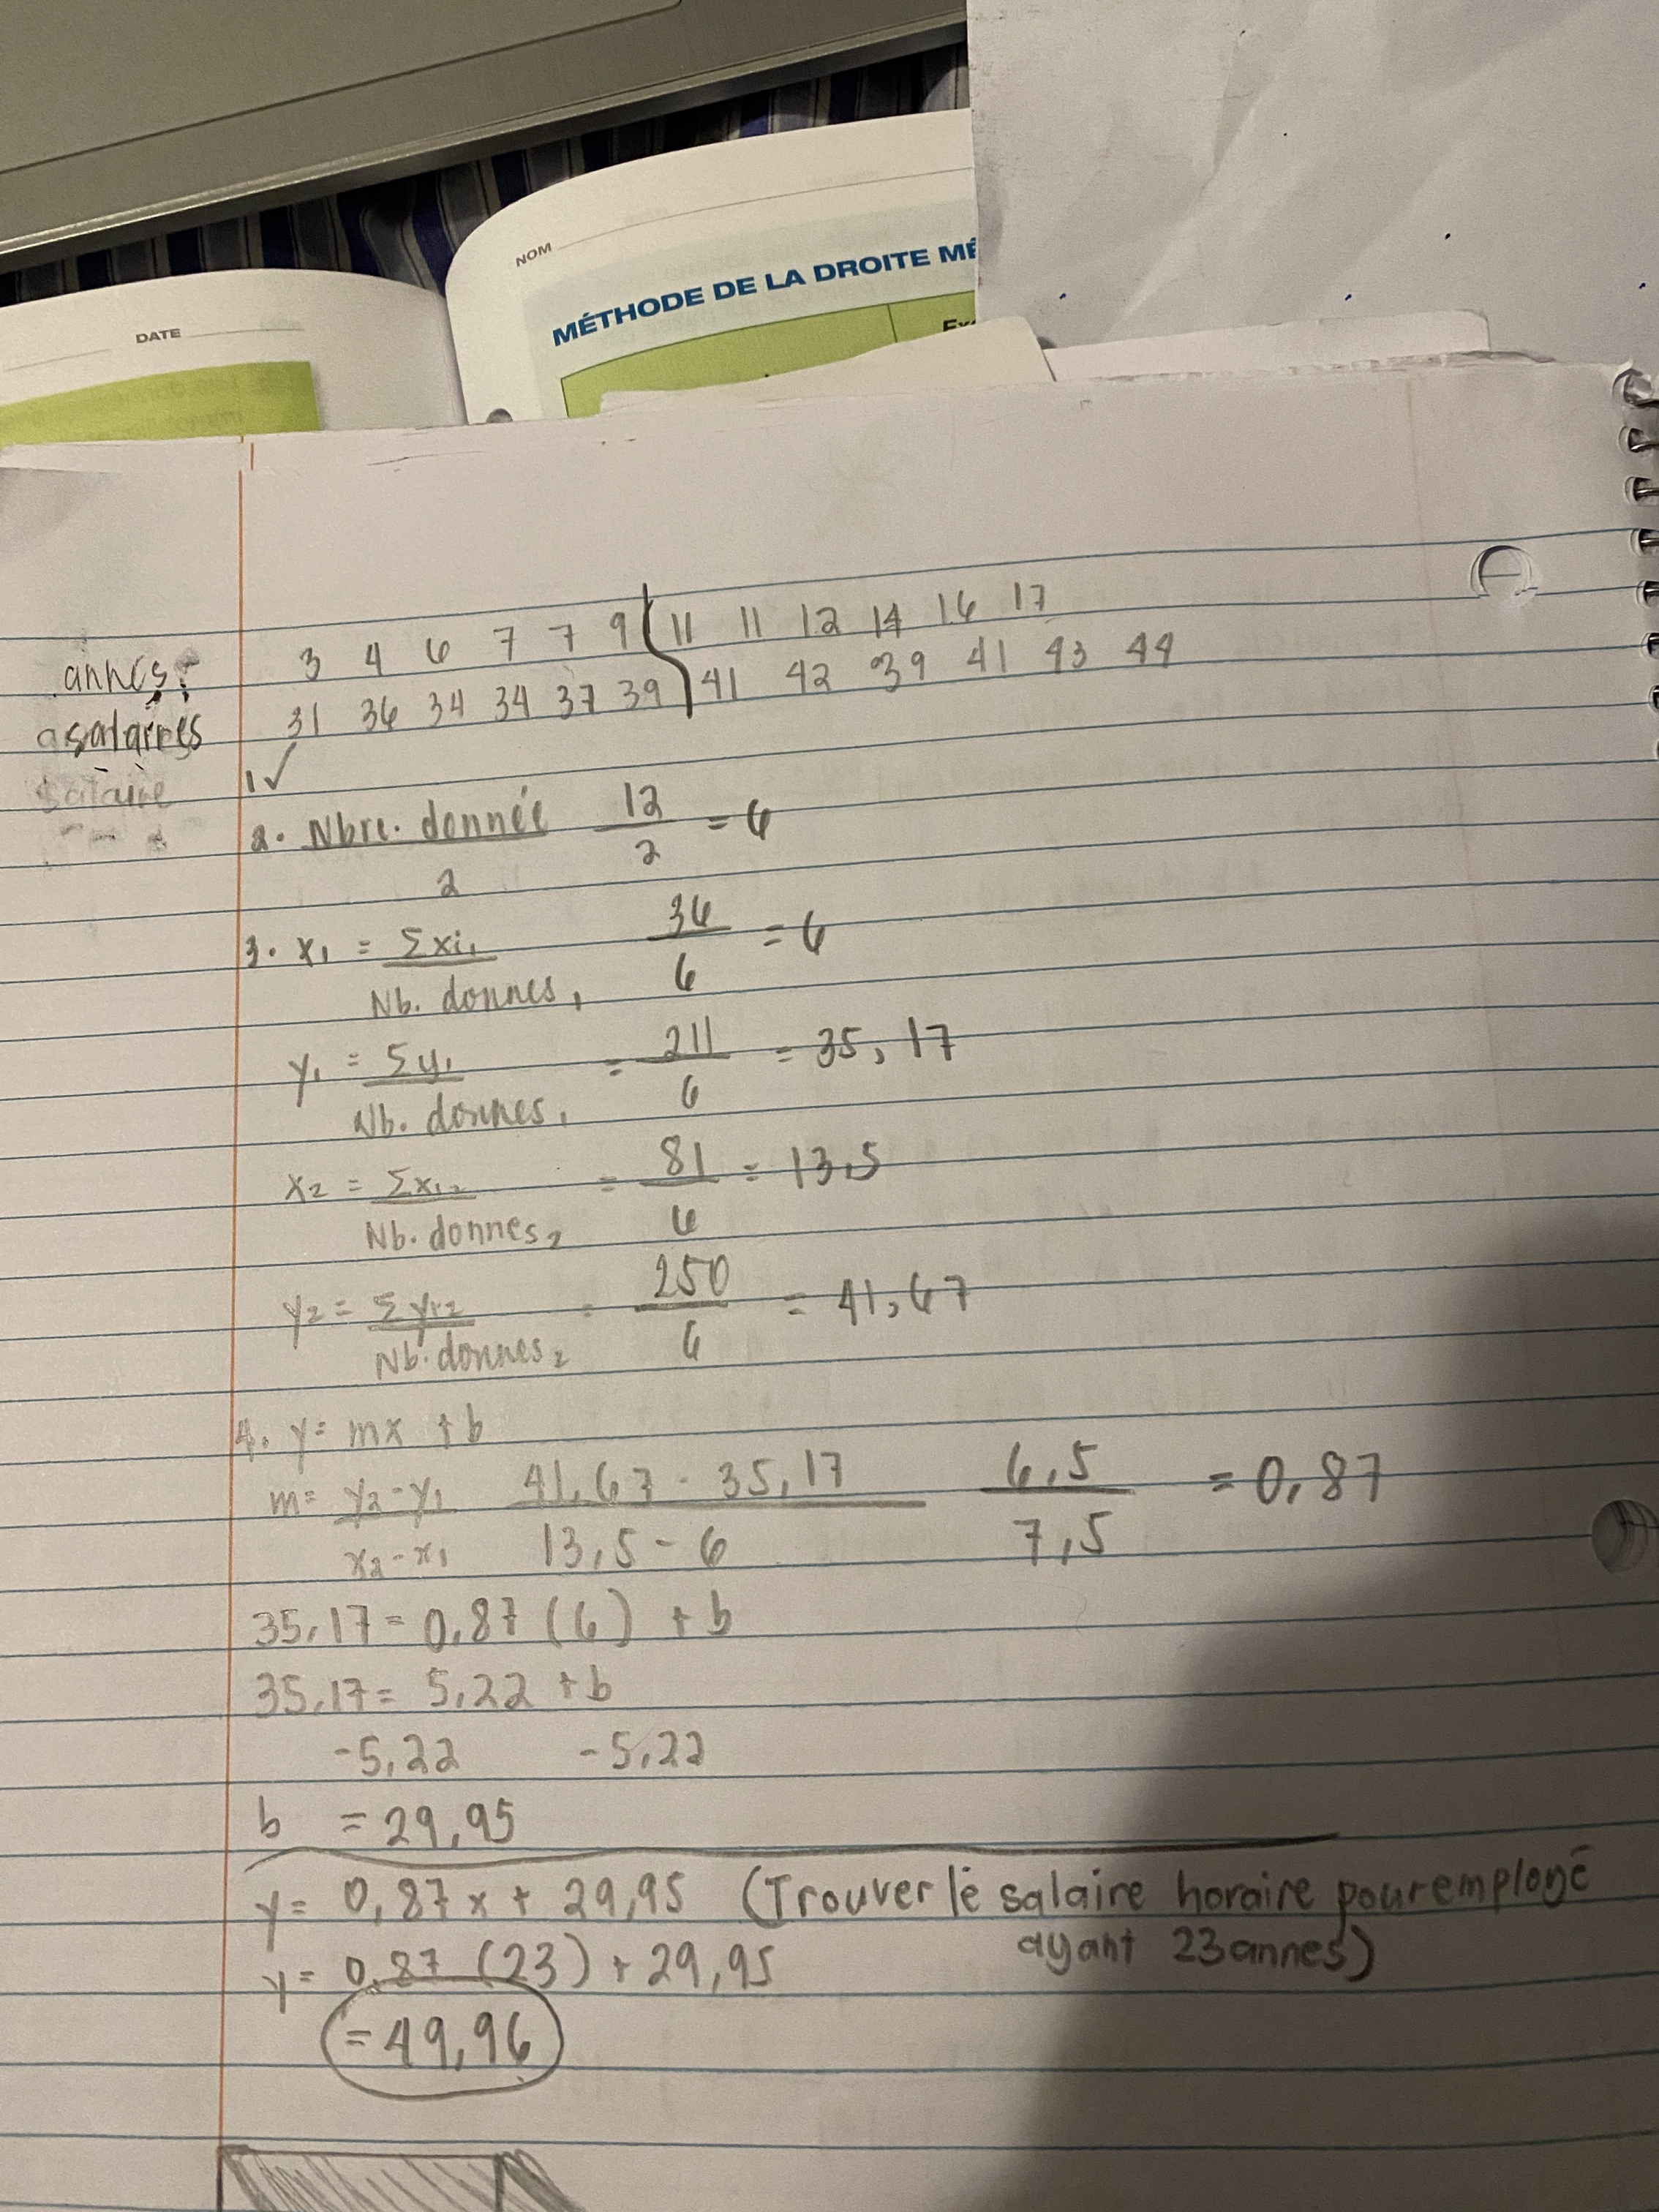 DATE
NOM
MÉTHODE DE LA DROITE MÉ
Ex
annes:
3 4 6 7 7 9 11 11 12 14 16 17
asalaires
31 36 34 34 37 39 41 42 39 41 43 44
salaire
1 ✓
2. Nbre. donnée / 2 12/2 = 6
3. x₁ = Σxi₁ / Nb. donnes₁ 36/6 = 6
y₁ = Σy₁ / Nb. donnes₁ = 211/6 = 35,17
x₂ = Σxi₂ / Nb. donnes₂ = 81/6 = 13,5
y₂ = Σyi₂ / Nb. donnes₂ = 250/6 = 41,67
4. y = mx + b
m = y₂-y₁ / x₂-x₁ 41,67 - 35,17 / 13,5 - 6 6,5/7,5 = 0,87
35,17 = 0,87 (6) + b
35,17 = 5,22 + b
-5,22 -5,22
b = 29,95
y = 0,87x + 29,95 (Trouver le salaire horaire pour employé
ayant 23 annes)
y = 0,87 (23) + 29,95
= 49,96